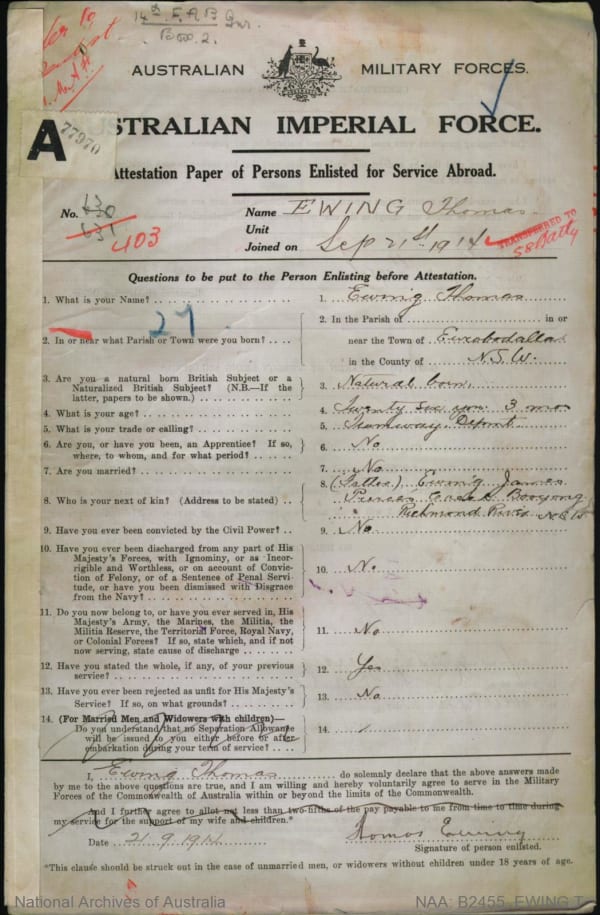 14th F.A.B
Box 2.
AUSTRALIAN MILITARY FORCES.
A 77970
STRALIAN IMPERIAL FORCE.
Attestation Paper of Persons Enlisted for Service Abroad.
No. 630
631
403
Name EWING Thomas
Unit
Joined on Sep 21st 1914
TRANSFERRED TO
58 Batty
Questions to be put to the Person Enlisting before Attestation.
1. What is your Name?
1. Ewing Thomas
27
2. In or near what Parish or Town were you born?
2. In the Parish of in or
near the Town of Eurobodalla
in the County of N.S.W.
3. Are you a natural born British Subject or a
Naturalized British Subject? (N.B.—If the
latter, papers to be shown.)
3. Natural born
4. What is your age?
4. Twenty six yrs 3 mos
5. What is your trade or calling?
5. Tramway Depmt
6. Are you, or have you been, an Apprentice? If so,
where, to whom, and for what period?
6. No
7. Are you married?
7. No
8. Who is your next of kin? (Address to be stated)
8. (Father) Ewing James
Pierces Creek Booyong
Richmond River N.S.W
9. Have you ever been convicted by the Civil Power?
9. No
10. Have you ever been discharged from any part of His
Majesty's Forces, with Ignominy, or as Incor-
rigible and Worthless, or on account of Convic-
tion of Felony, or of a Sentence of Penal Servi-
tude, or have you been dismissed with Disgrace
from the Navy?
10. No
11. Do you now belong to, or have you ever served in, His
Majesty's Army, the Marines, the Militia, the
Militia Reserve, the Territorial Force, Royal Navy,
or Colonial Forces? If so, state which, and if not
now serving, state cause of discharge
11. No
12. Have you stated the whole, if any, of your previous
service?
12. Yes
13. Have you ever been rejected as unfit for His Majesty's
Service? If so, on what grounds?
13. No
14. (For Married Men and Widowers with children)—
Do you understand that no Separation Allowance
will be issued to you either before or after
embarkation during your term of service?
14.
I, Ewing Thomas do solemnly declare that the above answers made
by me to the above questions are true, and I am willing and hereby voluntarily agree to serve in the Military
Forces of the Commonwealth of Australia within or beyond the limits of the Commonwealth.
And I further agree to allot not less than two-fifths of the pay payable to me from time to time during
my service for the support of my wife and children.*
Date 21.9.1914
Thomas Ewing
Signature of person enlisted.
*This clause should be struck out in the case of unmarried men, or widowers without children under 18 years of age.
National Archives of Australia
NAA: B2455, EWING T